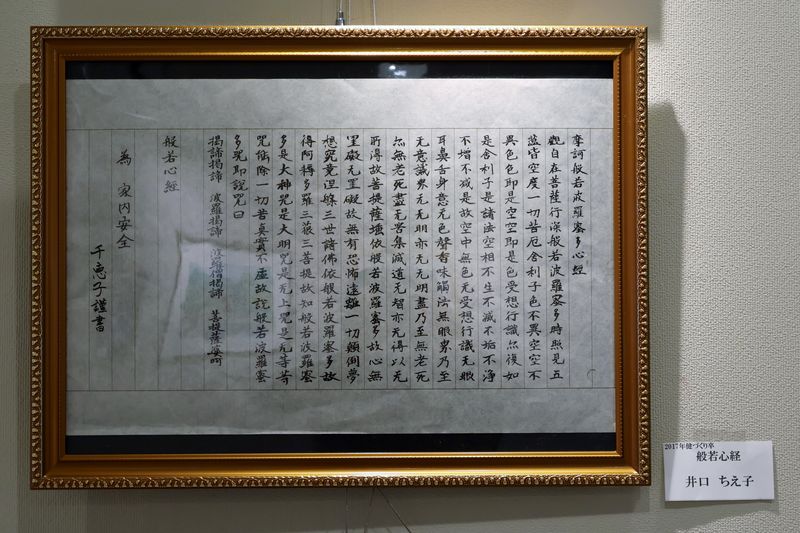 摩訶般若波羅蜜多心経
觀自在菩薩行深般若波羅蜜多時照見五
蘊皆空度一切苦厄舎利子色不異空空不
異色色即是空空即是色受想行識尒復如
是舎利子是諸法空相不生不滅不垢不浄
不増不减是故空中無色无受想行識无眼
耳鼻舌身意无色聲香味觸法無眼界乃至
无意識界无无明亦无无明盡乃至無老死
尒無老死盡无苦集滅道无智亦无得以无
所得故菩提薩埵依般若波羅蜜多故心無
罣礙无罣礙故無有恐怖遠離一切顛倒夢
想究竟涅槃三世諸佛依般若波羅蜜多故
得阿耨多羅三藐三菩提故知般若波羅蜜
多是大神咒是大明咒是无上咒是无等等
咒能除一切苦真實不虚故説般若波羅蜜
多咒即説咒曰
揭諦揭諦 波羅揭諦 波羅僧揭諦 菩提薩婆呵
般若心経
為 家内安全
千恵子謹書
2017年健づくり卒
般若心経
井口 ちえ子